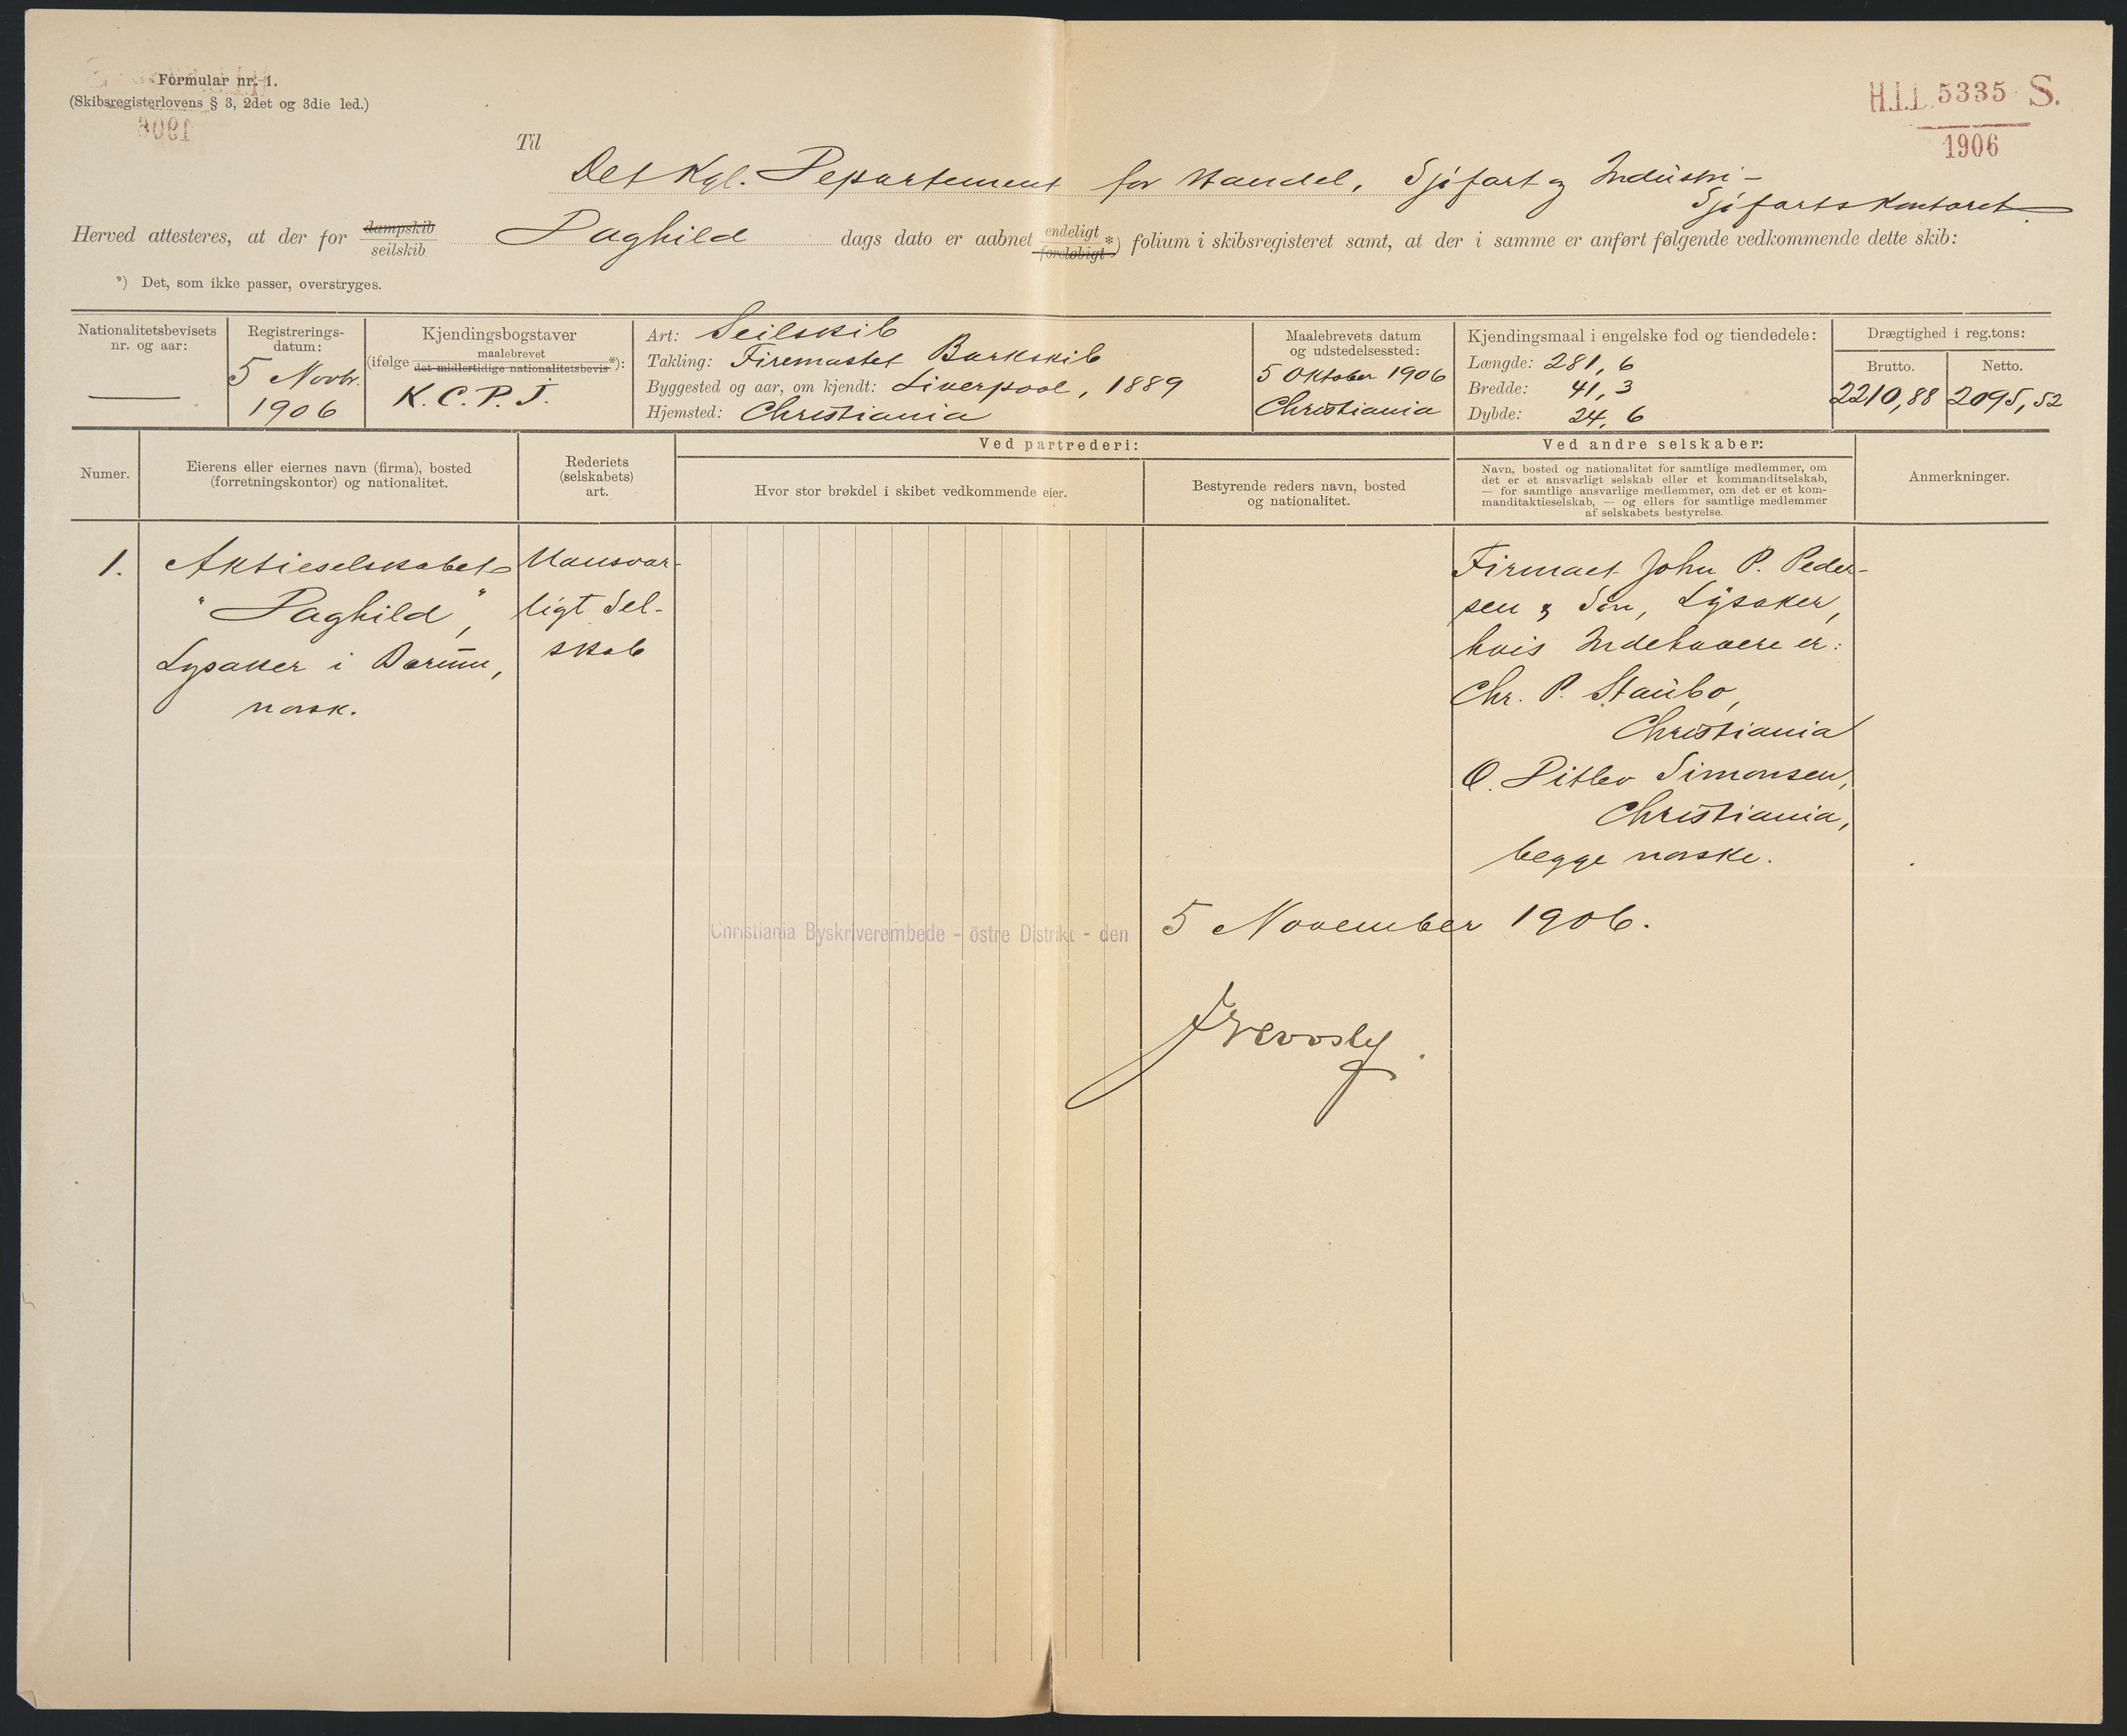 Formular nr. 1.
(Skibsregisterlovens § 3, 2det og 3die led.)
H.I.I. 5335 S.
1906
Til
Det Kgl. Departement for Handel, Sjøfart og Industri –
Sjøfartskontoret.
Herved attesteres, at der for dampskib seilskib Daghild dags dato er aabnet endeligt foreløbigt *) folium i skibsregisteret samt, at der i samme er anført følgende vedkommende dette skib:
*) Det, som ikke passer, overstryges.
Nationalitetsbevisets
nr. og aar:
Registrerings-
datum:
5 Novbr.
1906
Kjendingsbogstaver
(ifølge maalebrevet det midlertidige nationalitetsbevis *):
K. C. P. J.
Art: Seilskib
Takling: Firemastet Barkskib
Byggested og aar, om kjendt: Liverpool, 1889
Hjemsted: Christiania
Maalebrevets datum
og udstedelsessted:
5 Oktober 1906
Christiania
Kjendingsmaal i engelske fod og tiendedele:
Længde: 281,6
Bredde: 41,3
Dybde: 24,6
Drægtighed i reg.tons:
Brutto.
2210,88
Netto.
2095,52
Numer.
Eierens eller eiernes navn (firma), bosted
(forretningskontor) og nationalitet.
Rederiets
(selskabets)
art.
Ved partrederi:
Hvor stor brøkdel i skibet vedkommende eier.
Bestyrende reders navn, bosted
og nationalitet.
Ved andre selskaber:
Navn, bosted og nationalitet for samtlige medlemmer, om
det er et ansvarligt selskab eller et kommanditselskab,
— for samtlige ansvarlige medlemmer, om det er et kom-
manditaktieselskab, — og ellers for samtlige medlemmer
af selskabets bestyrelse.
Anmerkninger.
1.
Aktieselskabet
"Daghild",
Lysaker i Bærum,
norsk.
Uansvar-
ligt Sel-
skab
Firmaet John P. Peder-
sen & Søn, Lysaker,
hvis Indehavere er:
Chr. P. Staubo,
Christiania
O. Ditlev Simonsen,
Christiania,
begge norske.
Christiania Byskriverembede - östre Distrikt - den 5 November 1906.